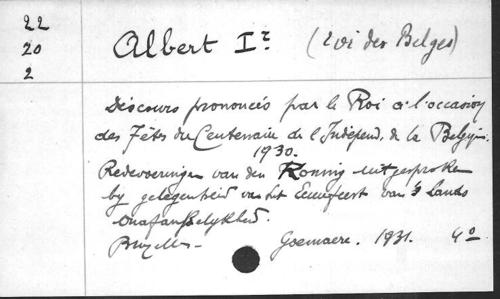 22
20
2
Albert Ir (roi des Belges)
Discours prononcés par le Roi à l'occasion
des Fêts du Centenaire de l'Indépend. de la Belgiq.
1930.
Redevoeringen van den Koning uitgesproken
by gelegenheid van het Eeuwfeest van 's Lands
Onafankelykheid.
Bruxelles - Goemaere. 1931. 4o